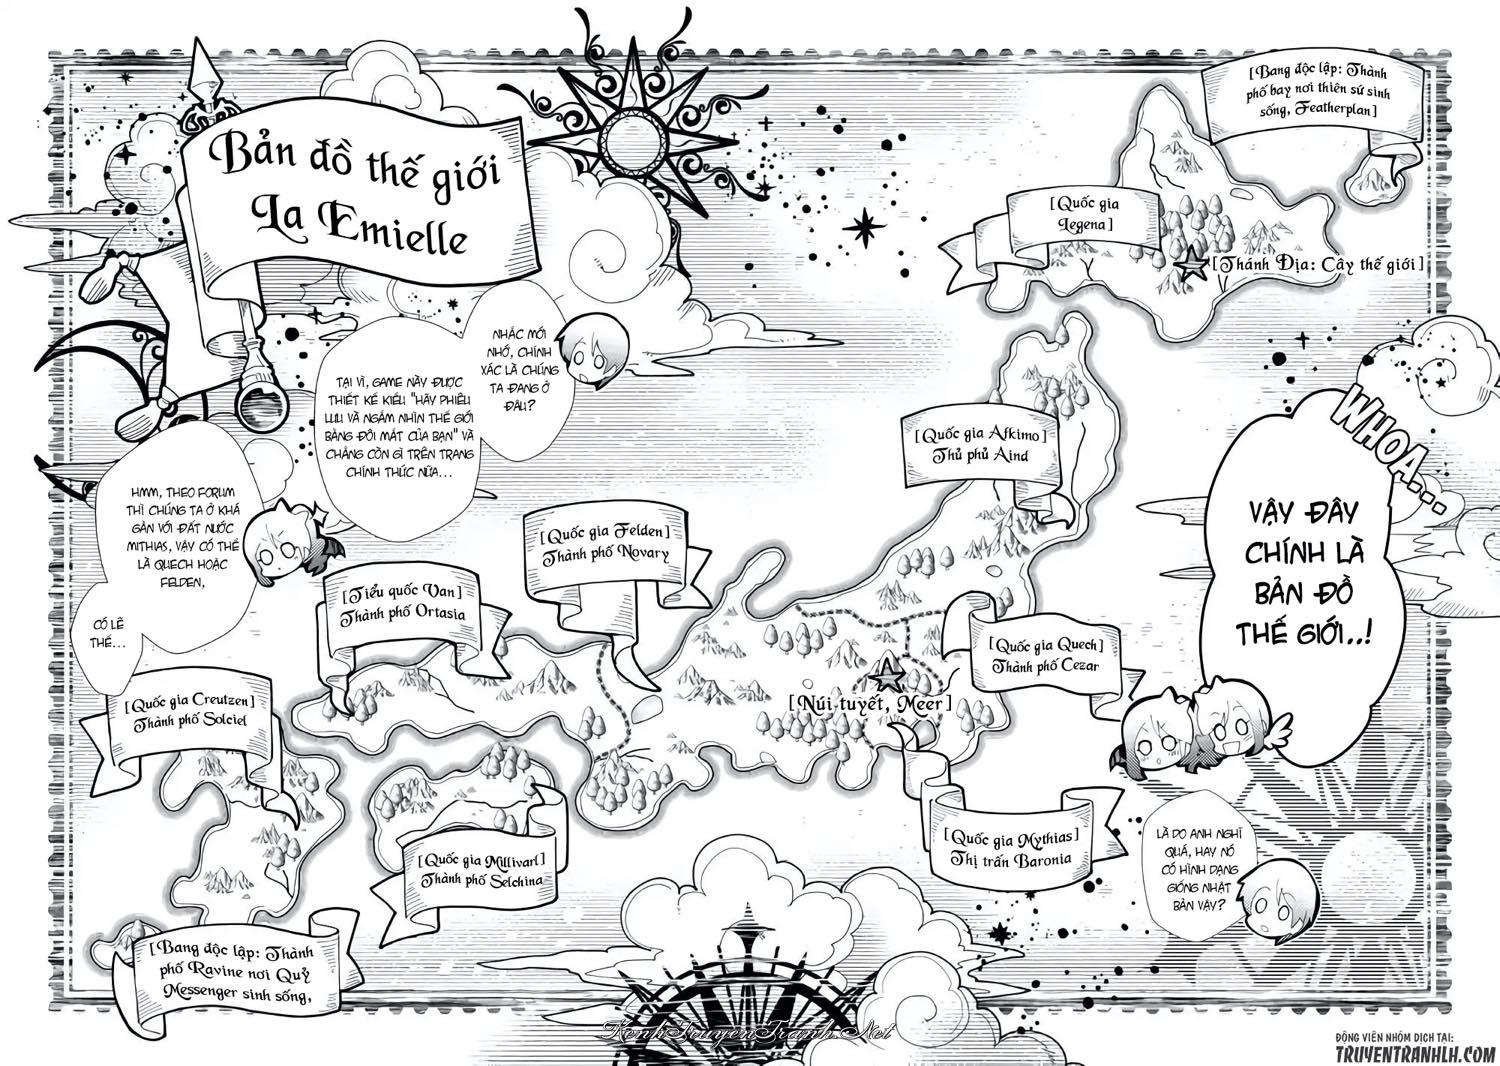 Bản đồ thế giới
La Emielle
[Bang độc lập: Thành
phố bay nơi thiên sứ sinh
sống, Featherplan]
[Quốc gia
Legena]
[Thánh Địa: Cây thế giới]
WHOA...
VẬY ĐÂY
CHÍNH LÀ
BẢN ĐỒ
THẾ GIỚI..!
LÀ DO ANH NGHĨ
QUÁ, HAY NÓ
CÓ HÌNH DẠNG
GIỐNG NHẬT
BẢN VẬY?
NHẮC MỚI
NHỚ, CHÍNH
XÁC LÀ CHÚNG
TA ĐANG Ở
ĐÂU?
TẠI VÌ, GAME NÀY ĐƯỢC
THIẾT KẾ KIỂU "HÃY PHIÊU
LƯU VÀ NGẮM NHÌN THẾ GIỚI
BẰNG ĐÔI MẮT CỦA BẠN" VÀ
CHẲNG CÒN GÌ TRÊN TRANG
CHÍNH THỨC NỮA...
HMM, THEO FORUM
THÌ CHÚNG TA Ở KHÁ
GẦN VỚI ĐẤT NƯỚC
MITHIAS, VẬY CÓ THỂ
LÀ QUECH HOẶC
FELDEN,
CÓ LẼ
THẾ...
[Quốc gia Afkimo]
Thủ phủ Aind
[Quốc gia Felden]
Thành phố Novary
[Tiểu quốc Van]
Thành phố Ortasia
[Quốc gia Quech]
Thành phố Cezar
[Núi tuyết, Meer]
[Quốc gia Creutzen]
Thành phố Solciel
[Quốc gia Mythias]
Thị trấn Baronia
[Quốc gia Millivarl]
Thành phố Selchina
[Bang độc lập: Thành
phố Ravine nơi Quỷ
Messenger sinh sống,
KenhTruyenTranh.Net
ĐỘNG VIÊN NHÓM DỊCH TẠI:
TRUYENTRANHLH.COM